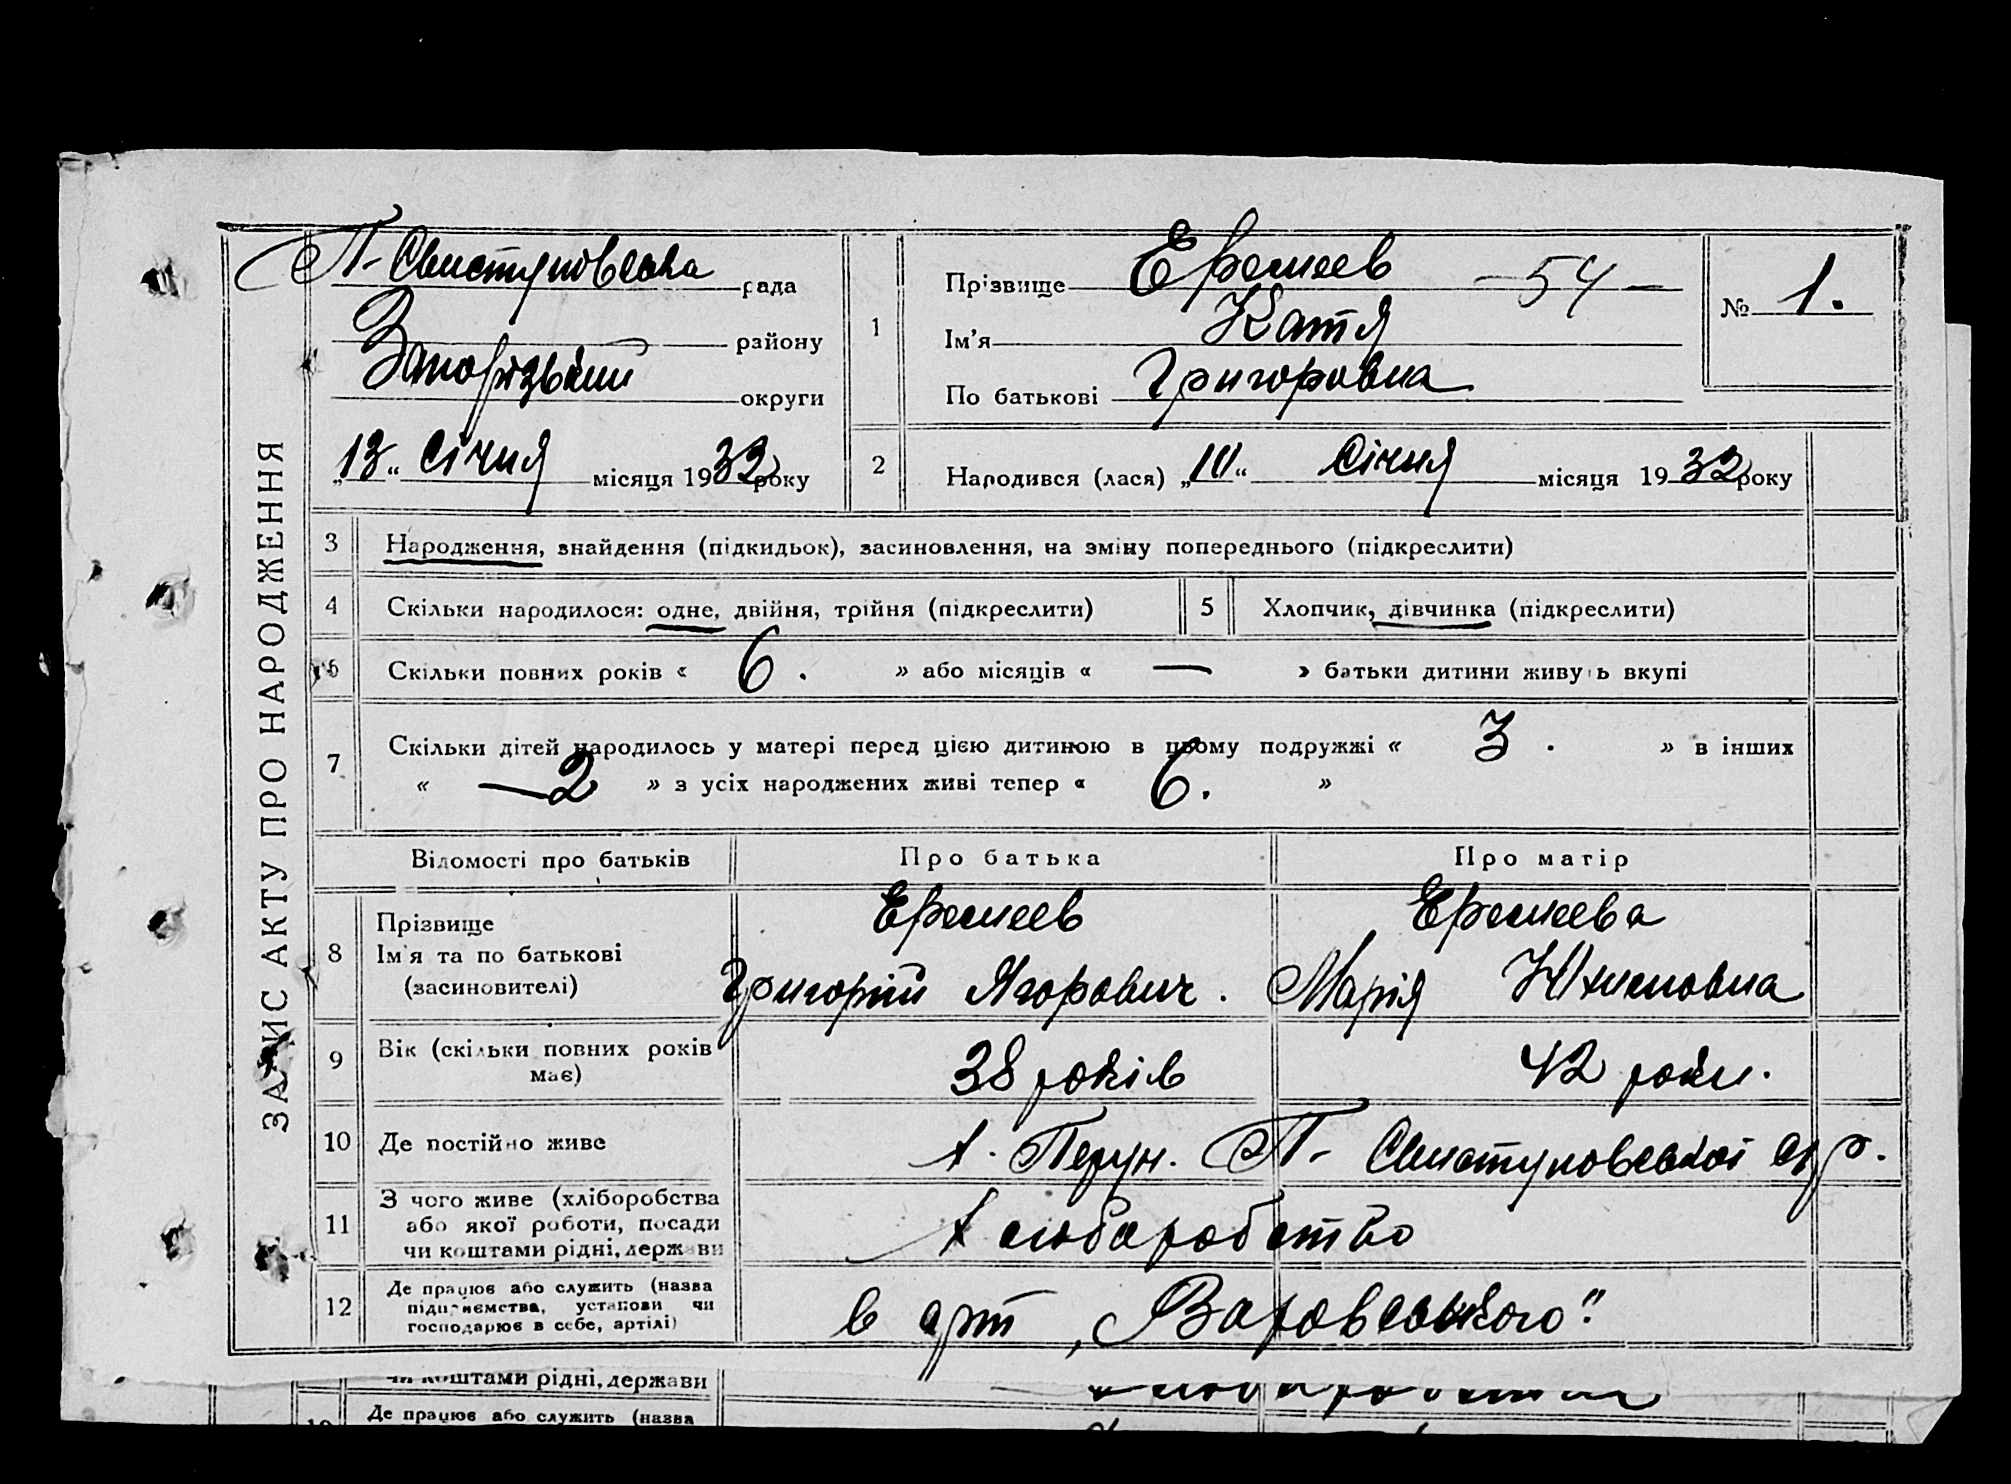 ЗАПИС АКТУ ПРО НАРОДЖЕННЯ
П- Свистуновська рада
району
Запорізький округи
„13“ січня місяця 1932 року
1 Прізвище Еремеев -54-
Ім'я Катя
По батькові Григоровна
№ 1.
2 Народився (лася) „10“ Січня місяця 1932 року
3 Народження, знайдення (підкидьок), засиновлення, на зміну попереднього (підкреслити)
4 Скільки народилося: одне, двійня, трійня (підкреслити) 5 Хлопчик, дівчинка (підкреслити)
6 Скільки повних років « 6. » або місяців « — » батьки дитини живуть вкупі
7 Скільки дітей народилось у матері перед цією дитиною в цьому подружжі « 3. » в інших
« —2 » з усіх народжених живі тепер « 6. »
Відомості про батьків Про батька Про матір
8 Прізвище Еремеев Еремеева
Ім'я та по батькові Григорій Ягорович. Марія
(засиновителі)
9 Вік (скільки повних років має) 38 років 42 роки.
10 Де постійно живе х. Перун. П- Свистуновської с/р.
11 З чого живе (хліборобства
або якої роботи, посади
чи коштами рідні, держави
Хлюборобство
12 Де працює або служить (назва
підприємства, установи чи
господарює в себе, артілі)
в арт „Варовського"
чи коштами рідні, держави
Де працює або служить (назва